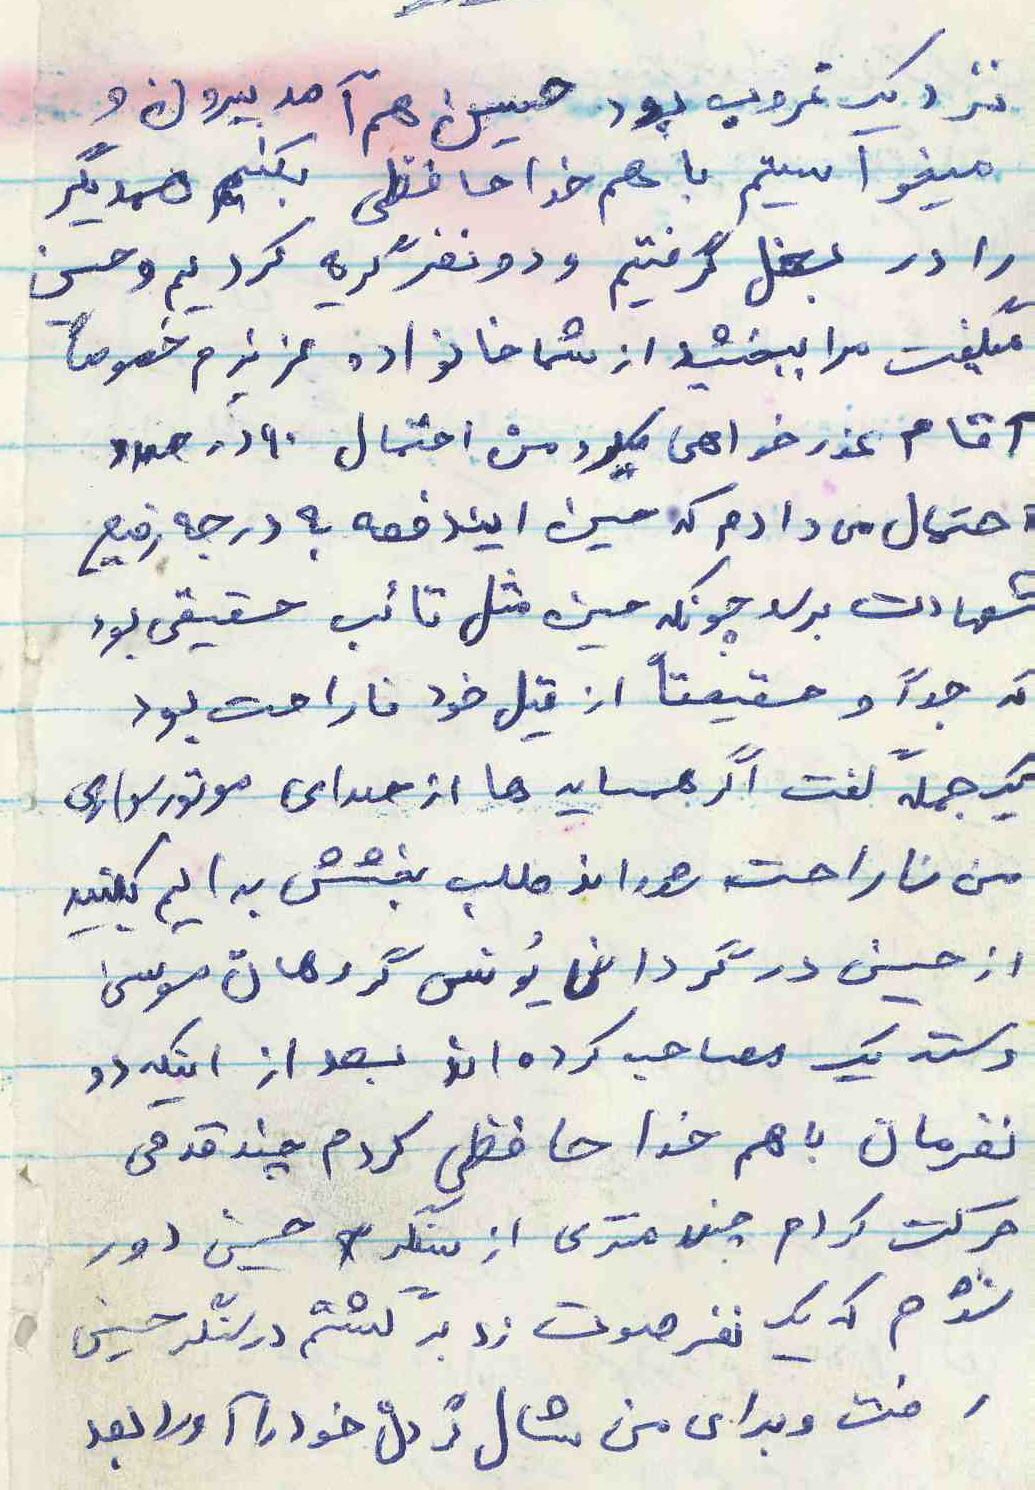 نزدیک غروب بود حسین هم آمد بیرون و
میخواستیم با هم خدا حافظی بکنیم همدیگر
را در بغل گرفتیم و دو نفر گریه کردیم و حسین
میگفت مرا ببخشید از شما خانواده عزیزم خصوصاً
آقام عذر خواهی میکرد من احتمال ۹۰ در صد
احتمال می دادم که حسین ایندفعه به درجه رفیع
شهادت برسد چونکه حسین مثل تائب حقیقی بود
که جداً و حقیقتاً از قبل خود ناراحت بود
یک جمله گفت اگر همسایه ها از صدای موتورسواری
من ناراحت شده اند طلب بخشش برایم بکنید
از حسین در گردان یُونس گروهان موسی
دسته یک مصاحبه کرده اند بعد از اینکه دو
نفرمان با هم خدا حافظی کردم چند قدمی
حرکت کردم چند متری از سنگر حسین دور
شدم که یک نفر صوت زد برگشتم در سنگر حسین
رفت و برای من شال گردن خود را آورد بعد